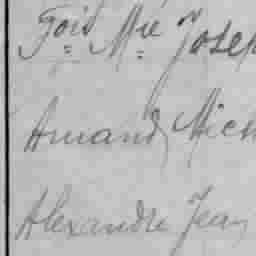 Fois Mie Josep
Amand Mich
Alexandre Jean